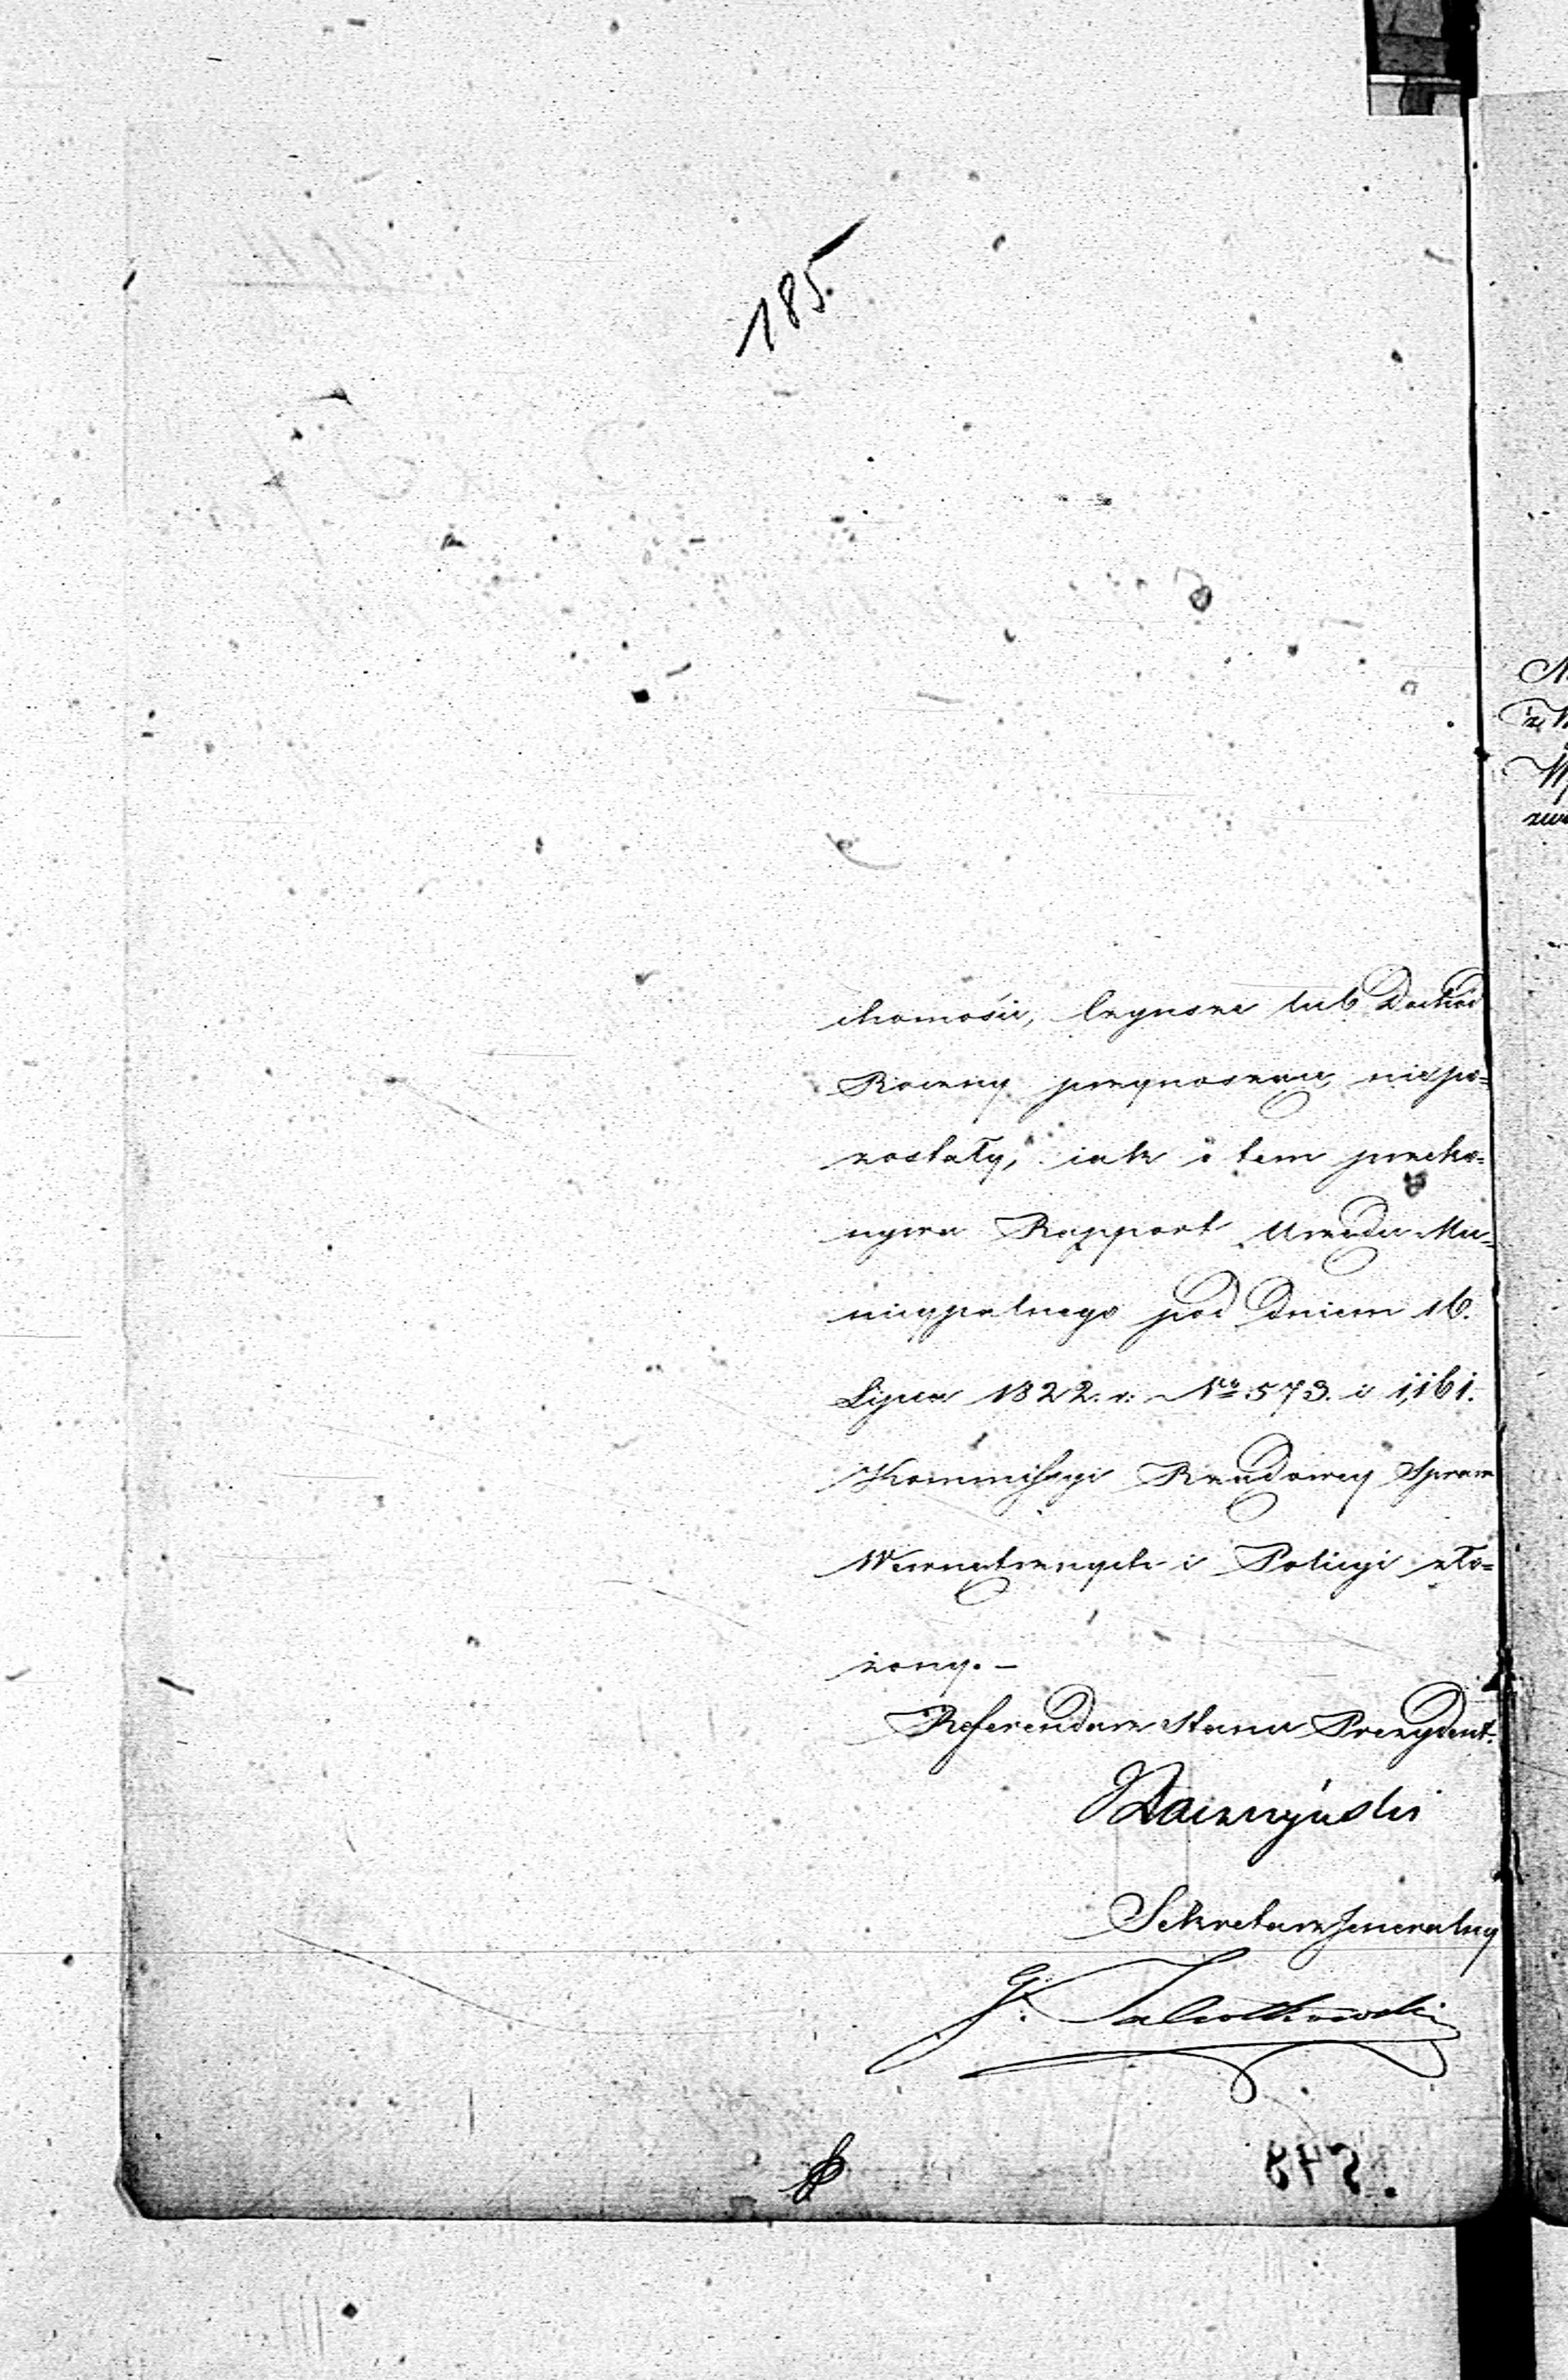 185
chomości, czynsze lub Dochód
Roczny przynoszące, niepo=
zostały, iak o tem przeko=
nywa Rapport Urzędu Mu=
nicypalnego pod Dniem 16.
Lipca 1822. r: No 573. i 1,161.
Kommissyi Rządowey Spraw
Wewnętrznych i Policyi zło=
żony. –
Referendarz Stanu Prezydent.
Sekretarz Jeneralny
G.